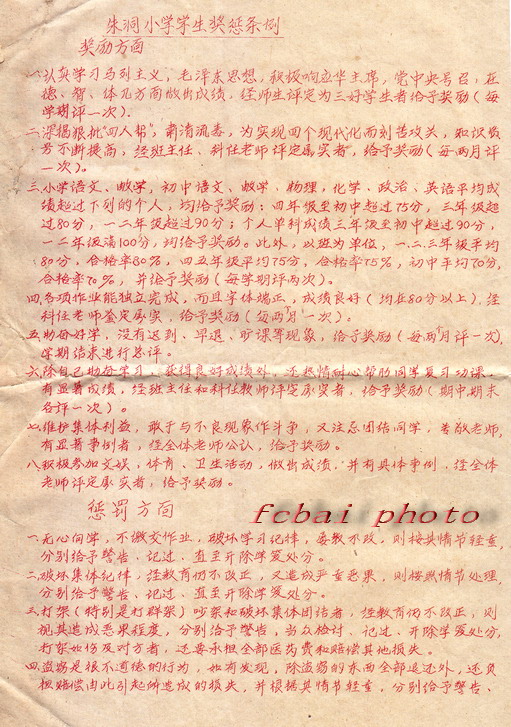 朱洞小学学生奖惩条例
奖励方面
一、认真学习马列主义，毛泽东思想，积极响应华主席，党中央号召，在
德、智、体几方面做出成绩，经师生评定为三好学生者给予奖励（每
学期评一次）．
二、深揭狠批"四人帮"，肃清流毒，为实现四个现代化而刻苦攻关，知识质
量不断提高，经班主任、科任老师评定属实者，给予奖励（每两月评
一次）。
三、小学语文、数学，初中语文、数学、物理，化学、政治、英语平均成
绩超过下列的个人，均给予奖励：四年级至初中超过75分，三年级超
过80分，一二年级超过90分；个人单科成绩三年级至初中超过90分，
一二年级满100分，均给予奖励。此外，以班为单位，一二三年级平均
80分，合格率80%，四五年级平均75分，合格率75%，初中平均70分，
合格率70%，并给予奖励（每学期评两次）。
四、各项作业能独立完成，而且字体端正，成绩良好（均在80分以上），经
科任老师鉴定属实，给予奖励（每两个月一次）。
五、勤奋好学，没有迟到、早退、旷课等现象，给予奖励（每个月评一次），
学期结束进行总评。
六、除自己勤奋学习，获得良好成绩外，还热情耐心帮助同学复习功课，
有显著成绩，经班主任和科任教师评定属实者，给予奖励（期中期末
各评一次）。
七、维护集体利益，敢于与不良现象作斗争，又注意团结同学，尊敬老师，
有显著事例者，经全体老师公认，给予奖励。
八、积极参加文娱，体育、卫生活动，做出成绩，并有具体事例，经全体
老师评定属实者，给予奖励。
惩罚方面
fcbai photo
一、无心向学，不缴交作业，破坏学习纪律，屡教不改，则按其情节轻重，
分别给予警告、记过、直至开除学爱处分。
二、破坏集体纪律，经教育仍不改正，又造成严重恶果，则按照情节处理，
分别给予警告、记过、直至开除学爱处分。
三、打架（特别是打群架）吵架和破坏集体团结者，经教育仍不改正，则
视其造成恶果程度，分别给予警告，当众检讨、记过、开除学爱处分，
打架如伤及对方者，还要承担全部医药费和赔偿其他损失。
四、盗窃是很不道德的行为，如有发现，除盗窃的东西全部退还外，还负
担赔偿由此引起所造成的损失，并根据其情节轻重，分别给予警告、